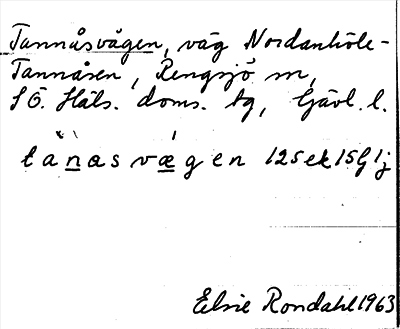 Tannåsvägen, väg Nordanhöle-
Tannåsen, Rengsjö sn,
S Ö. Häls. doms. tg, Gävl. l.
tanasvægen 12 Sek 15G 1j
Elsie Rondahl 1963